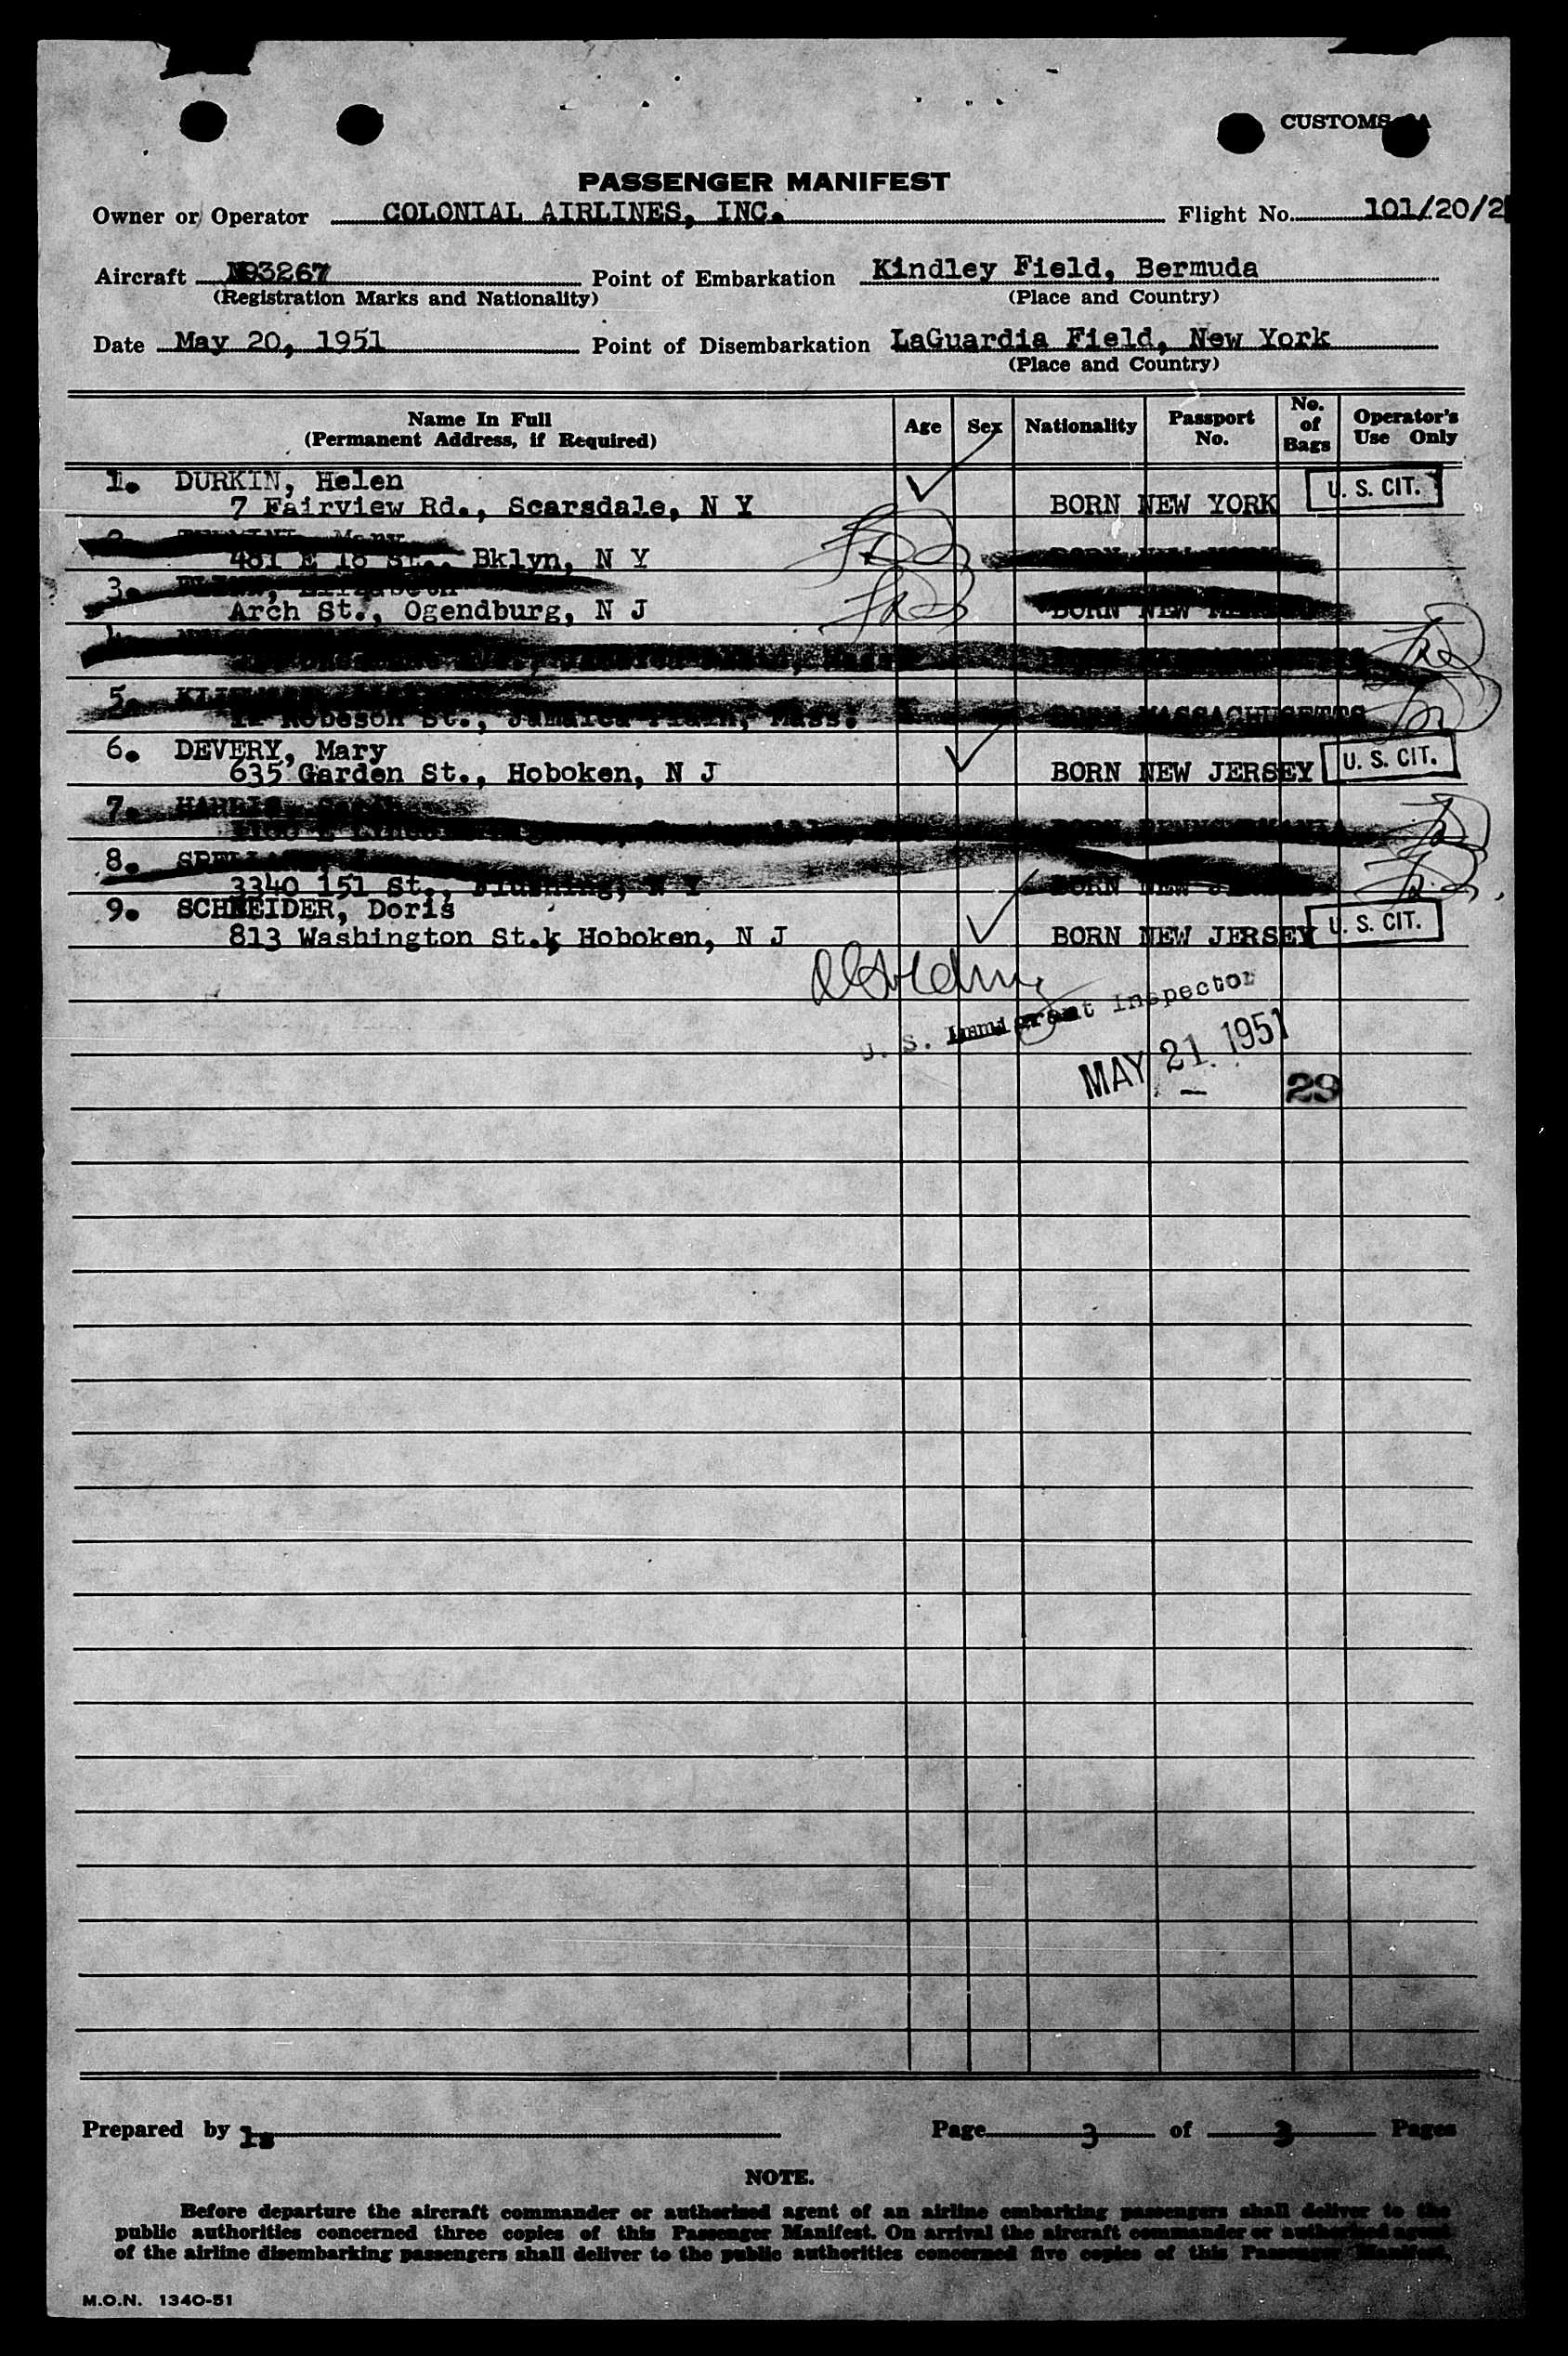 CUSTOMS
PASSENGER MANIFEST
Owner or Operator COLONIAL AIRLINES, INC. Flight No. 101/20/2
Aircraft N93267 Point of Embarkation Kindley Field, Bermuda
(Registration Marks and Nationality) (Place and Country)
Date May 20, 1951 Point of Disembarkation LaGuardia Field, New York
(Place and Country)
Name In Full (Permanent Address, if Required) Age Sex Nationality Passport No. No. of Bags Operator's Use Only
1. DURKIN, Helen
7 Fairview Rd., Scarsdale, N Y BORN NEW YORK U. S. CIT.
Mary
481 E 18 St., Bklyn, N Y BORN NEW YORK
3. Elizabeth
Arch St., Ogendburg, N J BORN NEW
5.
Robeson St., Jamaica Plain, Mass. BORN MASSACHUSETTS
6. DEVERY, Mary
635 Garden St., Hoboken, N J BORN NEW JERSEY U. S. CIT.
7. HARRIS,
BORN PENNSYLVANIA
8.
3340 151 St., Flushing, N Y BORN NEW
9. SCHNEIDER, Doris
813 Washington St.k Hoboken, N J BORN NEW JERSEY U. S. CIT.
U. S. Immigrant Inspector
MAY 21. 1951
29
Prepared by ls Page 3 of 3 Pages
NOTE.
Before departure the aircraft commander or authorised agent of an airline embarking passengers shall deliver to the
public authorities concerned three copies of this Passenger Manifest. On arrival the aircraft commander or authorised agent
of the airline disembarking passengers shall deliver to the public authorities concerned five copies of this Passenger Manifest.
M.O.N. 1340-51